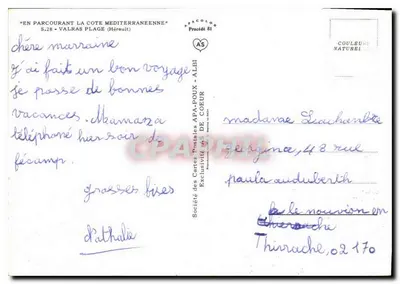 "EN PARCOURANT LA COTE MEDITERRANEENNE"
S.28 - VALRAS PLAGE (Hérault)
APACOLOR
Procédé 81
AS
COULEURS
NATUREL
chère marraine
j'ai fait un bon voyage
je passe de bonnes
vacances. Maman a
téléphoné hier soir de
fécamp.
grosses bises
Nathalie
Société des Cartes Postales APA-POUX - ALBI
Exclusivité AS DE COEUR
CPAPHIL.COM
madame
48 rue
paula audubertih
le nouvion en
Thierache
Thirrache, 02170